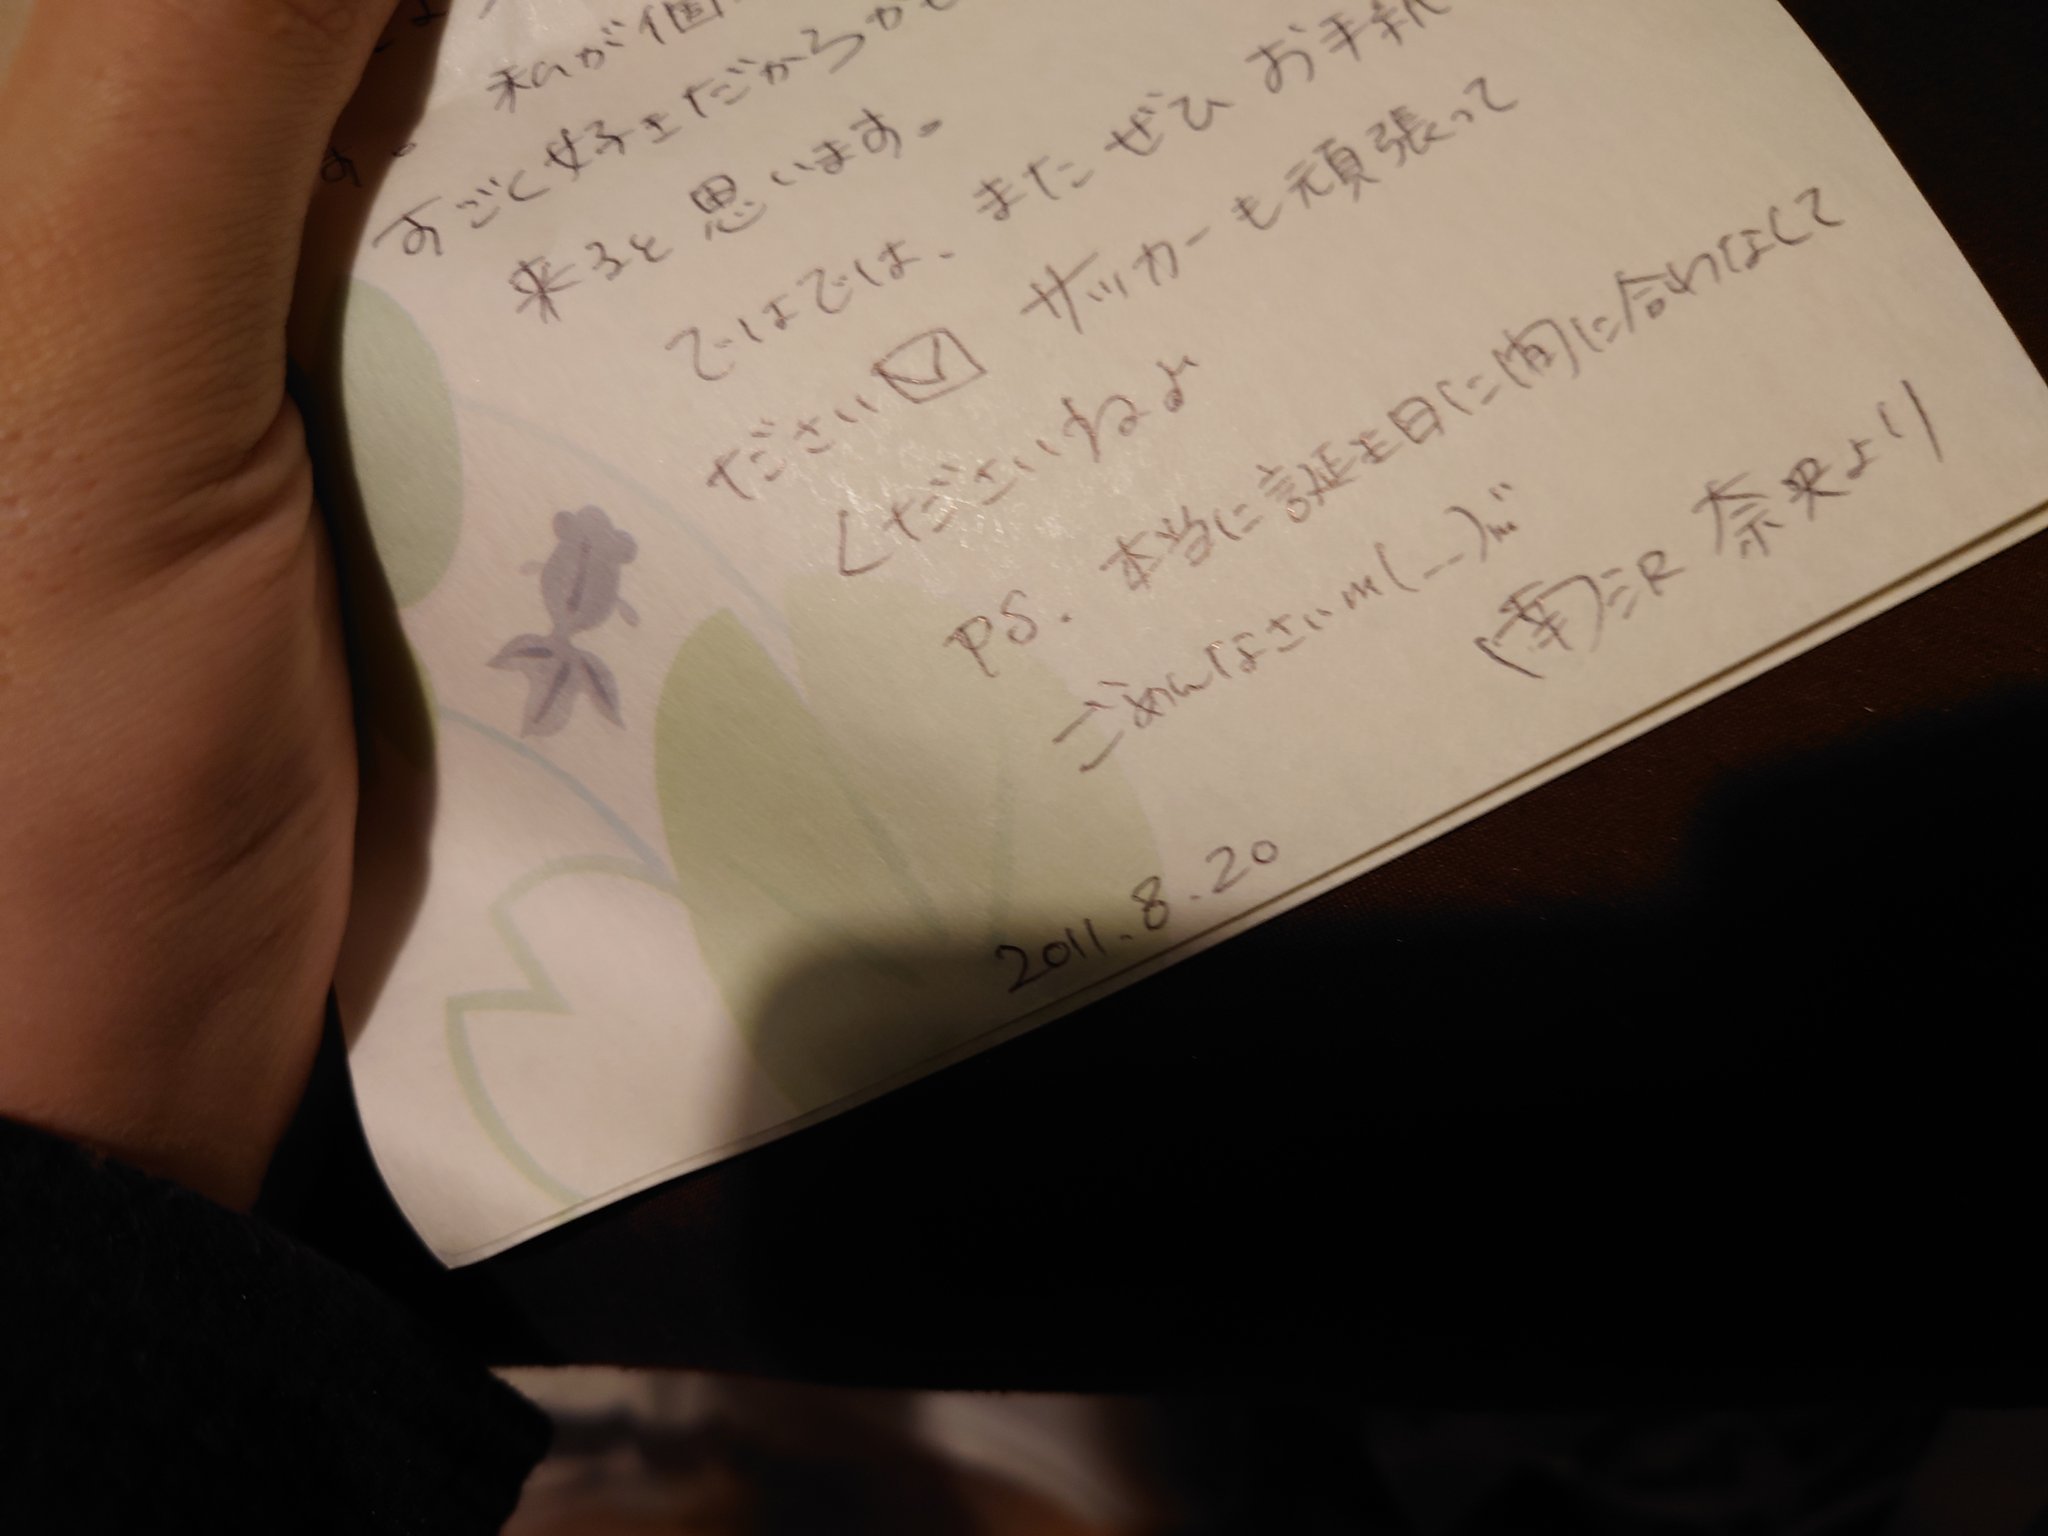 私が個
す。
すごく好きだから
来ると思います。
ではでは、またぜひお手紙
ださい サッカーも頑張って
くださいねよ
PS. 本当に誕生日に間に合わなくて
ごめんなさいm(_ _)m
奈央より
2011.8.20